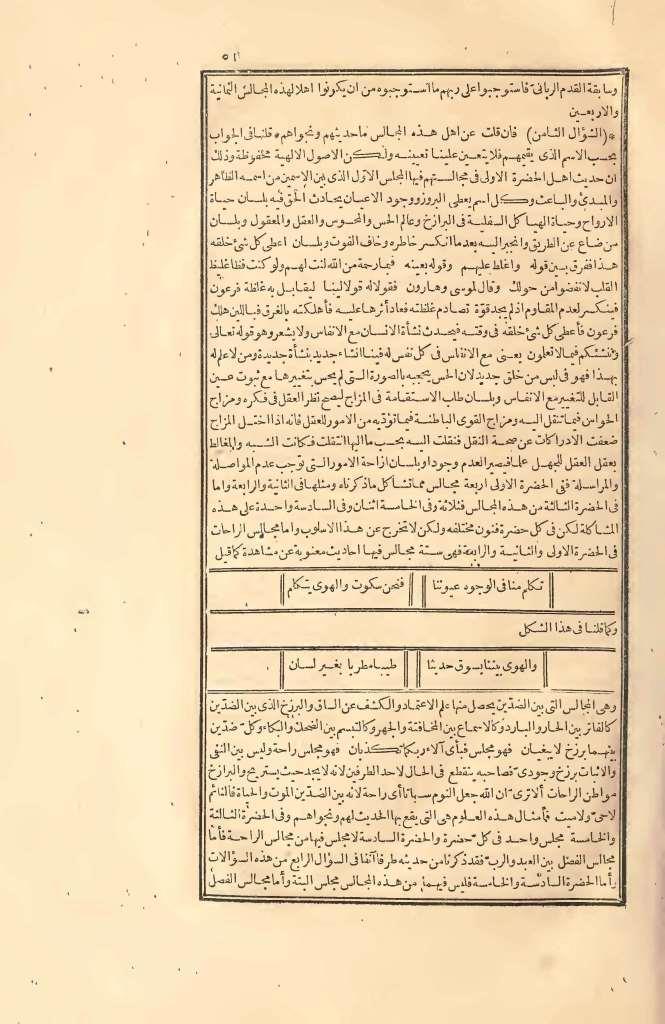 ٥١
وسابقة القدم الرباني فاستوجبوا على ربهم ما استوجبوه من ان يكونوا اهلا لهذه المجالس الثمانية
والاربعين
* (السؤال الثامن) فان قلت عن اهل هذه المجالس ما حديثهم ونجواهم * قلنا فى الجواب
بحسب الاسم الذى يقيمهم فلا يتعين علينا تعيينه ولكن الاصول الالهية محفوظة وذلك
ان حديث اهل الحضرة الاولى فى مجالستهم فيها المجلس الاول الذى بين الاسمين من اسمه الظاهر
والمبدئ والباعث وكل اسم يعطى البروز ووجود الاعيان يحادث الحق فيه بلسان حياة
الارواح وحياة الهياكل السفلية فى البرازخ وعالم الحس والمحسوس والعقل والمعقول وبلسان
من ضاع عن الطريق وانجبر اليه بعدما انكسر خاطره وخاف الفوت وبلسان اعطى كل شئ خلقه
هذا ففرق بين قوله واغلظ عليهم وقوله بعينه فبما رحمة من الله لنت لهم ولو كنت فظا غليظ
القلب لانفضوا من حولك وقال لموسى وهارون فقولا له قولا لينا ليقابل به غلظة فرعون
فينكسر لعدم المقاوم اذ لم يجد قوة تصادم غلظته فعاد أثرها عليه فأهلكته بالغرق فباللين هلك
فرعون فأعطى كل شئ خلقه فى وقته فيحدث نشأة الانسان مع الانفاس ولا يشعر وهو قوله تعالى
وننشئكم فيما لا تعلمون يعنى مع الانفاس فى كل نفس له فينا انشاء جديد بنشأة جديدة ومن لا علم له
بهذا فهو فى لبس من خلق جديد لان الحس يحجبه بالصورة التى لم يحس بتغييرها مع ثبوت عين
القابل للتغيير مع الانفاس وبلسان طلب الاستقامة فى المزاج ليصح نظر العقل فى فكره ومزاج
الحواس فيما تنقل اليه ومزاج القوى الباطنة فيما تؤديه من الامور للعقل فانه اذا اختل المزاج
ضعفت الادراكات عن صحة النقل فنقلت اليه بحسب ما اليها انتقلت فكانت الشبه والمغالط
بعقل العقل للجهل علما فيصير العدم وجودا وبلسان ازاحة الامور التى توجب عدم المواصلة
والمراسلة ففى الحضرة الاولى اربعة مجالس مما تشاكل ما ذكرناه ومثلها فى الثانية والرابعة واما
فى الحضرة الثالثة من هذه المجالس فثلاثة وفى الخامسة اثنان وفى السادسة واحدة على هذه
المشاكلة لكن فى كل حضرة فنون مختلفه ولكن لا تخرج عن هذا الاسلوب واما مجالس الراحات
فى الحضرة الاولى والثانية والرابعة فهى ستة مجالس فيها احاديث معنوية عن مشاهدة كما قيل
تكلم منا فى الوجوه عيوننا فنحن سكوت والهوى يتكلم
وكما قلنا فى هذا الشكل
والهوى بيننا يسوق حديثا طيبا مطربا بغير لسان
وهى المجالس التى بين الضدين يحصل منها علم الاعتماد والكشف عن الساق والبرزخ الذى بين الضدين
كالفاتر بين الحار والبارد وكالاسماع بين المخافتة والجهر وكالتبسم بين الضحك والبكاء وكل ضدين
بينهما برزخ لا يبغيان فهو مجلس فبأى آلاء ربكما تكذبان فهو مجلس راحة وليس بين النفى
والاثبات برزخ وجودى فصاحبه ينقطع فى الحال لاحد الطرفين لانه لا يجد حيث يستريح والبرازخ
مواطن الراحات ألا ترى ان الله جعل النوم سباتا أى راحة لانه بين الضدين الموت والحياة فالنائم
لا حى ولا ميت فأمثال هذه العلوم هى التى يقع بها الحديث لهم ونجواهم وفى الحضرة الثالثة
والخامسة مجلس واحد فى كل حضرة والحضرة السادسة لا مجلس فيها من مجالس الراحة فأما
مجالس الفصل بين العبد والرب فقد ذكرنا من حديثه طرفا آنفا فى السؤال الرابع من هذه السؤالات
وأما الحضرة السادسة والخامسة فليس فيهما من هذه المجالس مجلس البتة وأما مجالس الفصل